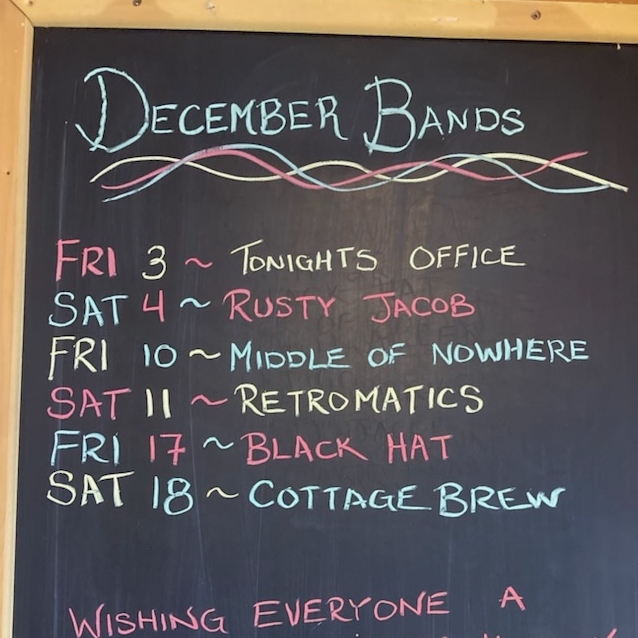 DECEMBER BANDS
FRI 3 ~ TONIGHTS OFFICE
SAT 4 ~ RUSTY JACOB
FRI 10 ~ MIDDLE OF NOWHERE
SAT 11 ~ RETROMATICS
FRI 17 ~ BLACK HAT
SAT 18 ~ COTTAGE BREW
WISHING EVERYONE A